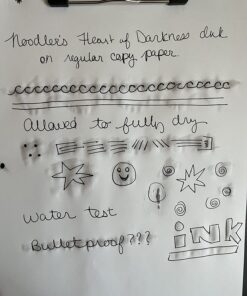 Noodler's Heart of Darkness Ink
on regular copy paper
cccccccccccccccccccccccccc
Allowed to fully dry
water test
Bulletproof???
INK